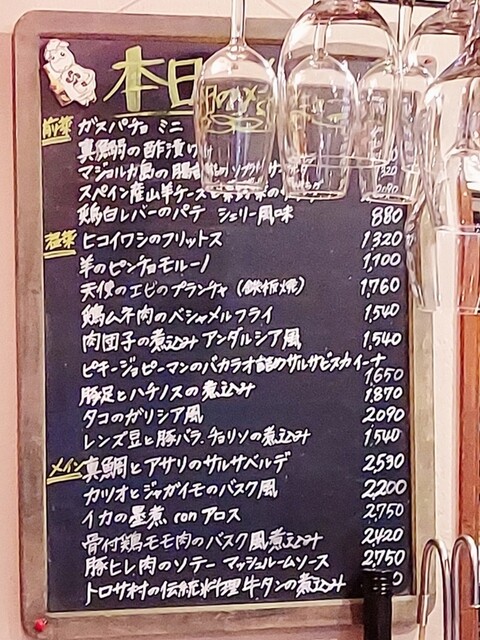 本日
前菜 ガスパチョ ミニ
真鯛の酢漬け
マジョルカ島の腸
スペイン産山羊チーズと
鶏白レバーのパテ シェリー風味 880
温菜 ヒコイワシのフリットス 1,320
羊のピンチョモルーノ 1,100
天使のエビのプランチャ (鉄板焼) 1,760
鶏ムネ肉のベシャメルフライ 1,540
肉団子の煮込み アンダルシア風 1,540
ピキージョピーマンのバカラオ詰めサルサビスカイーナ 1,650
豚足とハチノスの煮込み 1,870
タコのガリシア風 2090
レンズ豆と豚バラ、チョリソの煮込み 1,540
メイン 真鯛とアサリのサルサベルデ 2,530
カツオとジャガイモのバスク風 2,200
イカの墨煮 con アロス 2,750
骨付鶏モモ肉のバスク風煮込み 2,420
豚ヒレ肉のソテー マッシュルームソース 2,750
トロサ村の伝統料理 牛タンの煮込み